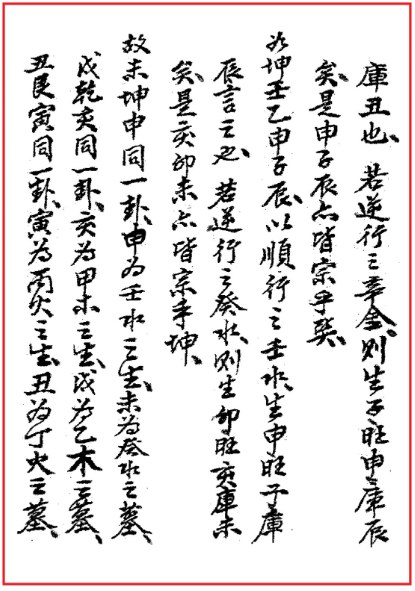 庫丑也、若逆行之辛金、则生子旺申庫辰
矣、是申子辰亦皆宗乎巽、
為坤壬乙申子辰、以順行之壬水、生申旺子庫
辰言之也、若逆行之癸水、则生卯旺亥庫未
矣、是亥卯未亦皆宗乎坤、
故未坤申同一卦、申為壬水之生、未為癸水之墓、
戌乾亥同一卦、亥為甲木之生、戌為乙木之墓、
丑艮寅同一卦、寅為丙火之生、丑為丁火之墓、